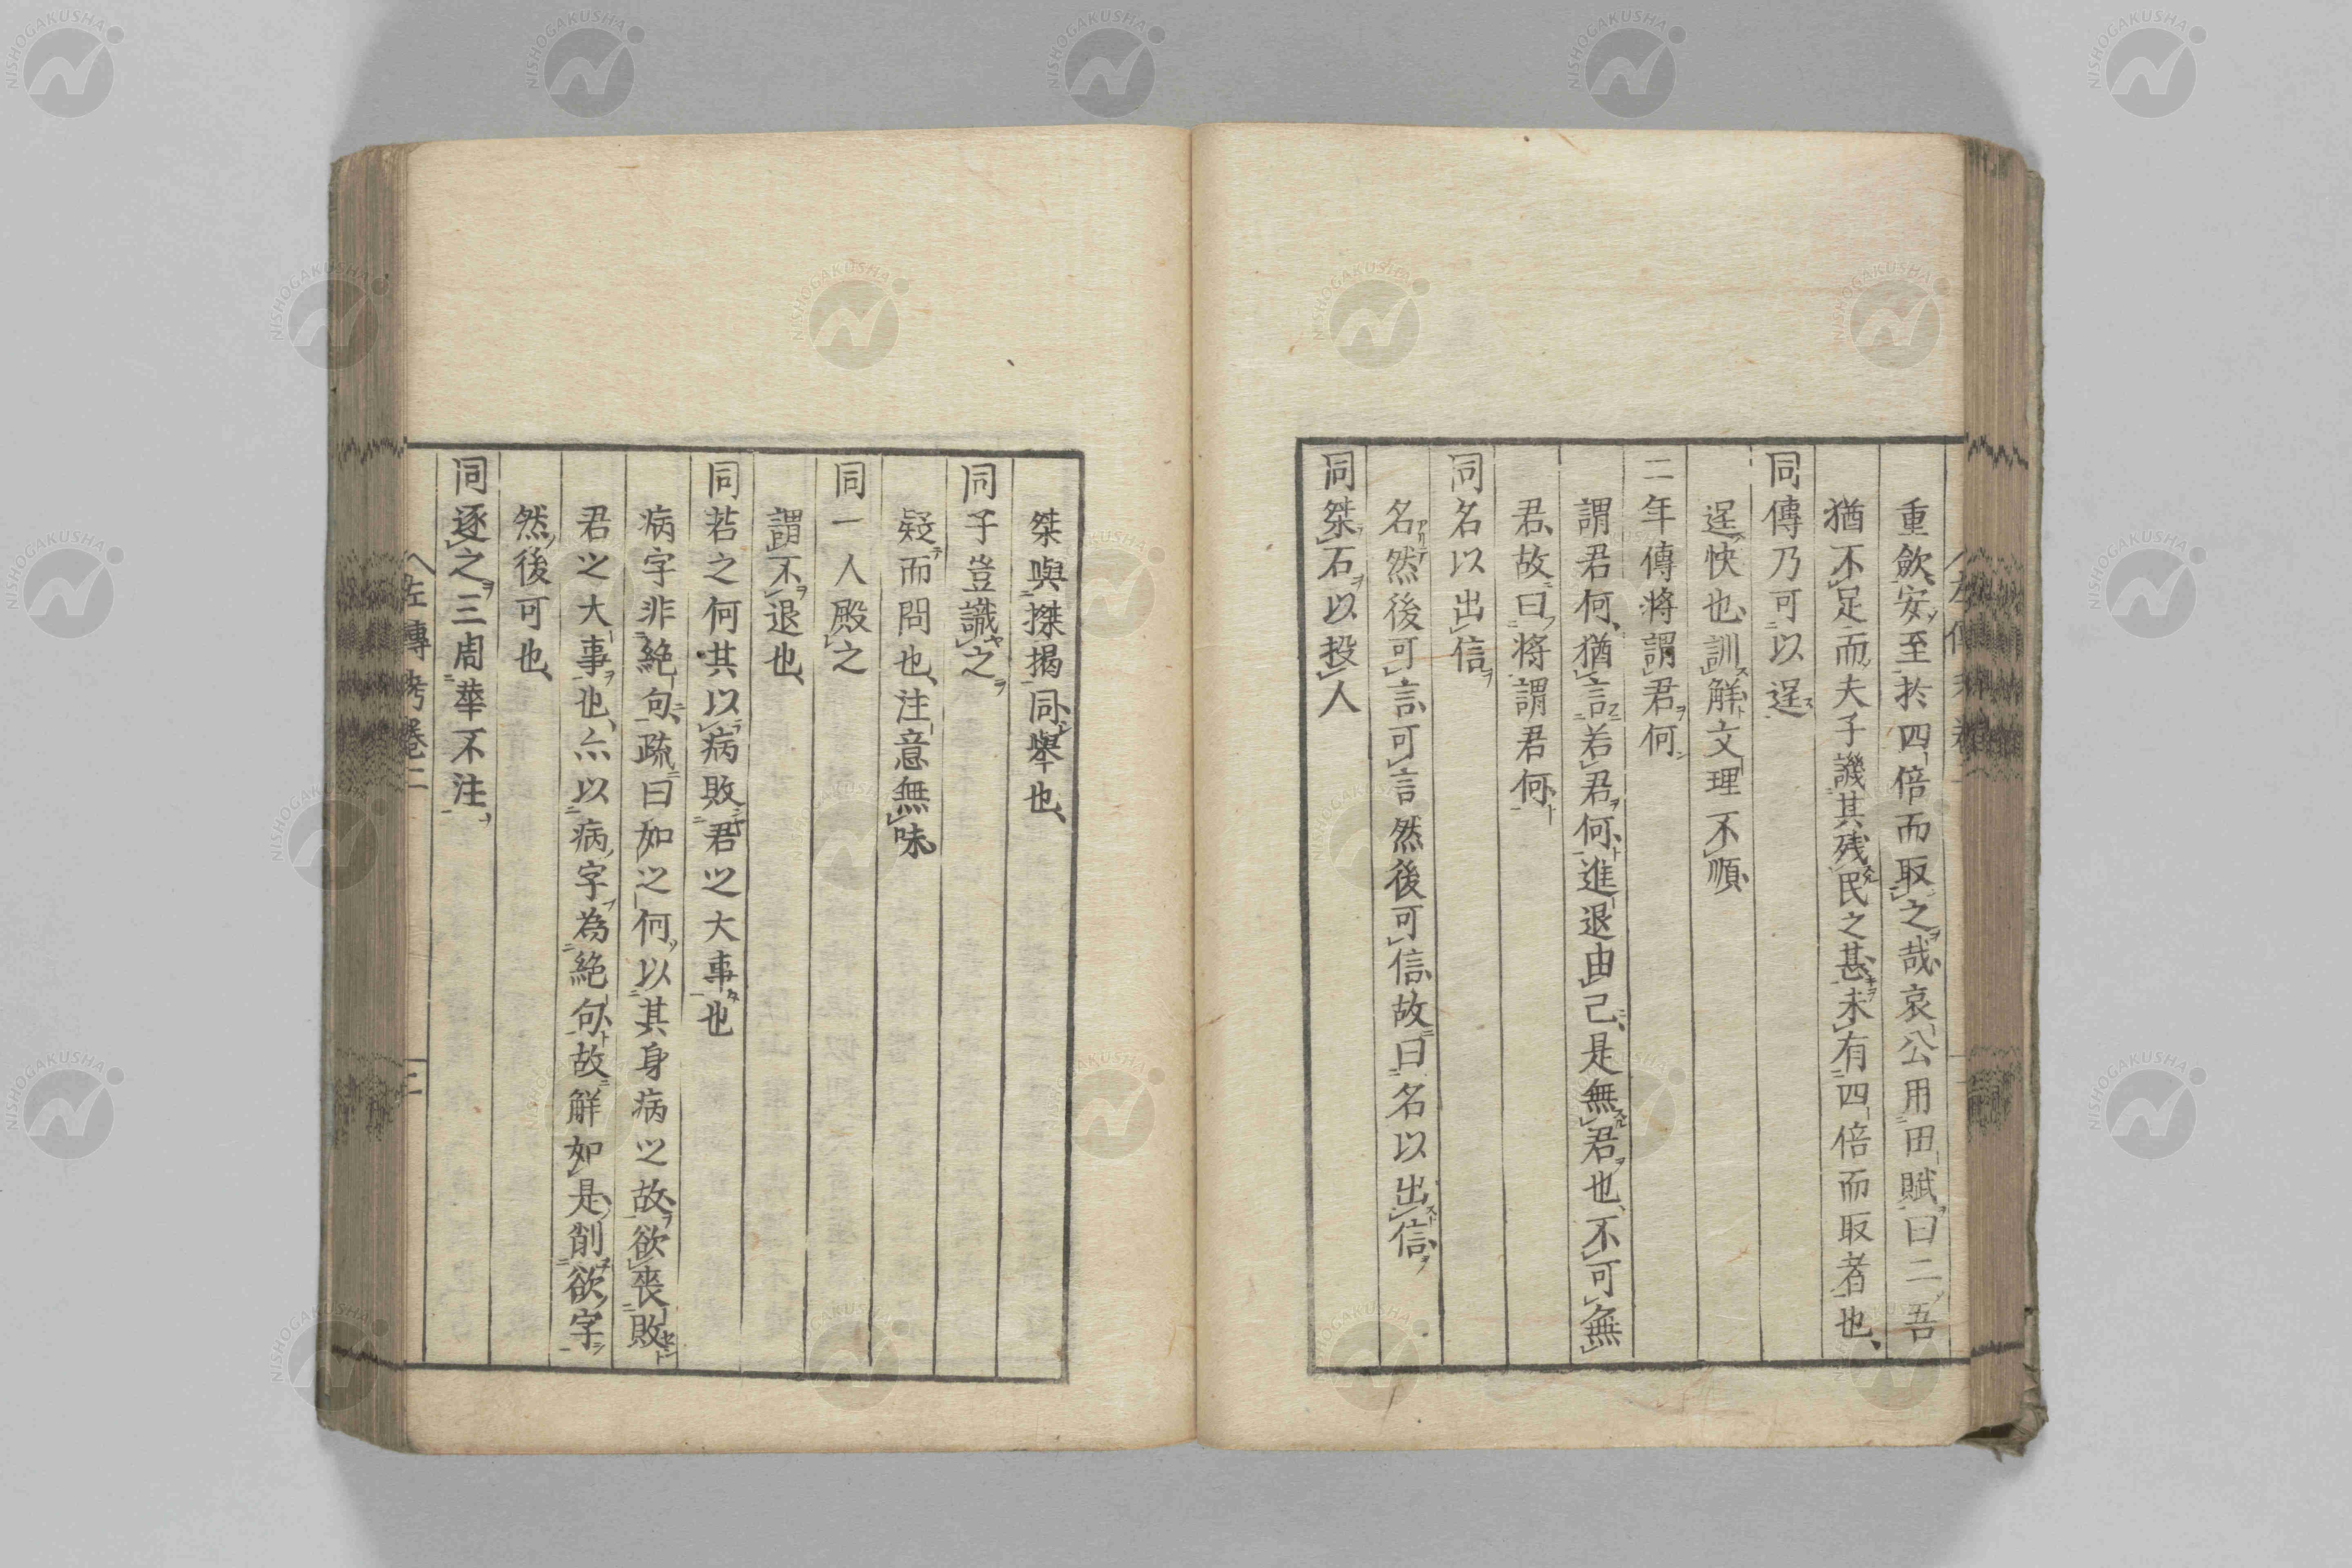 重斂、安至於四倍而取之哉、哀公用田賦、曰二吾
猶不足而夫子譏其残民之甚、未有四倍而取者也、
同傳乃可以逞
逞快也、訓解文理不順、
二年傳将謂君何
謂君何、猶言若君何、進退由己、是無君也、不可無
君、故曰将謂君何、
同名以出信
名然後可言、可言然後可信、故曰名以出信、
同桀石以投人
桀與搩揭同、舉也、
同子豈識之
疑而問也、注意無味
同一人殿之
謂不退也、
同若之何其以病敗君之大事也
病字非絶句、疏曰如之何以其身病之故、欲喪敗
君之大事也、亦以病字為絶句、故解如是、削欲字
然後可也、
同逐之三周華不注、
左傳考卷二
三
NISHOGAKUSHA